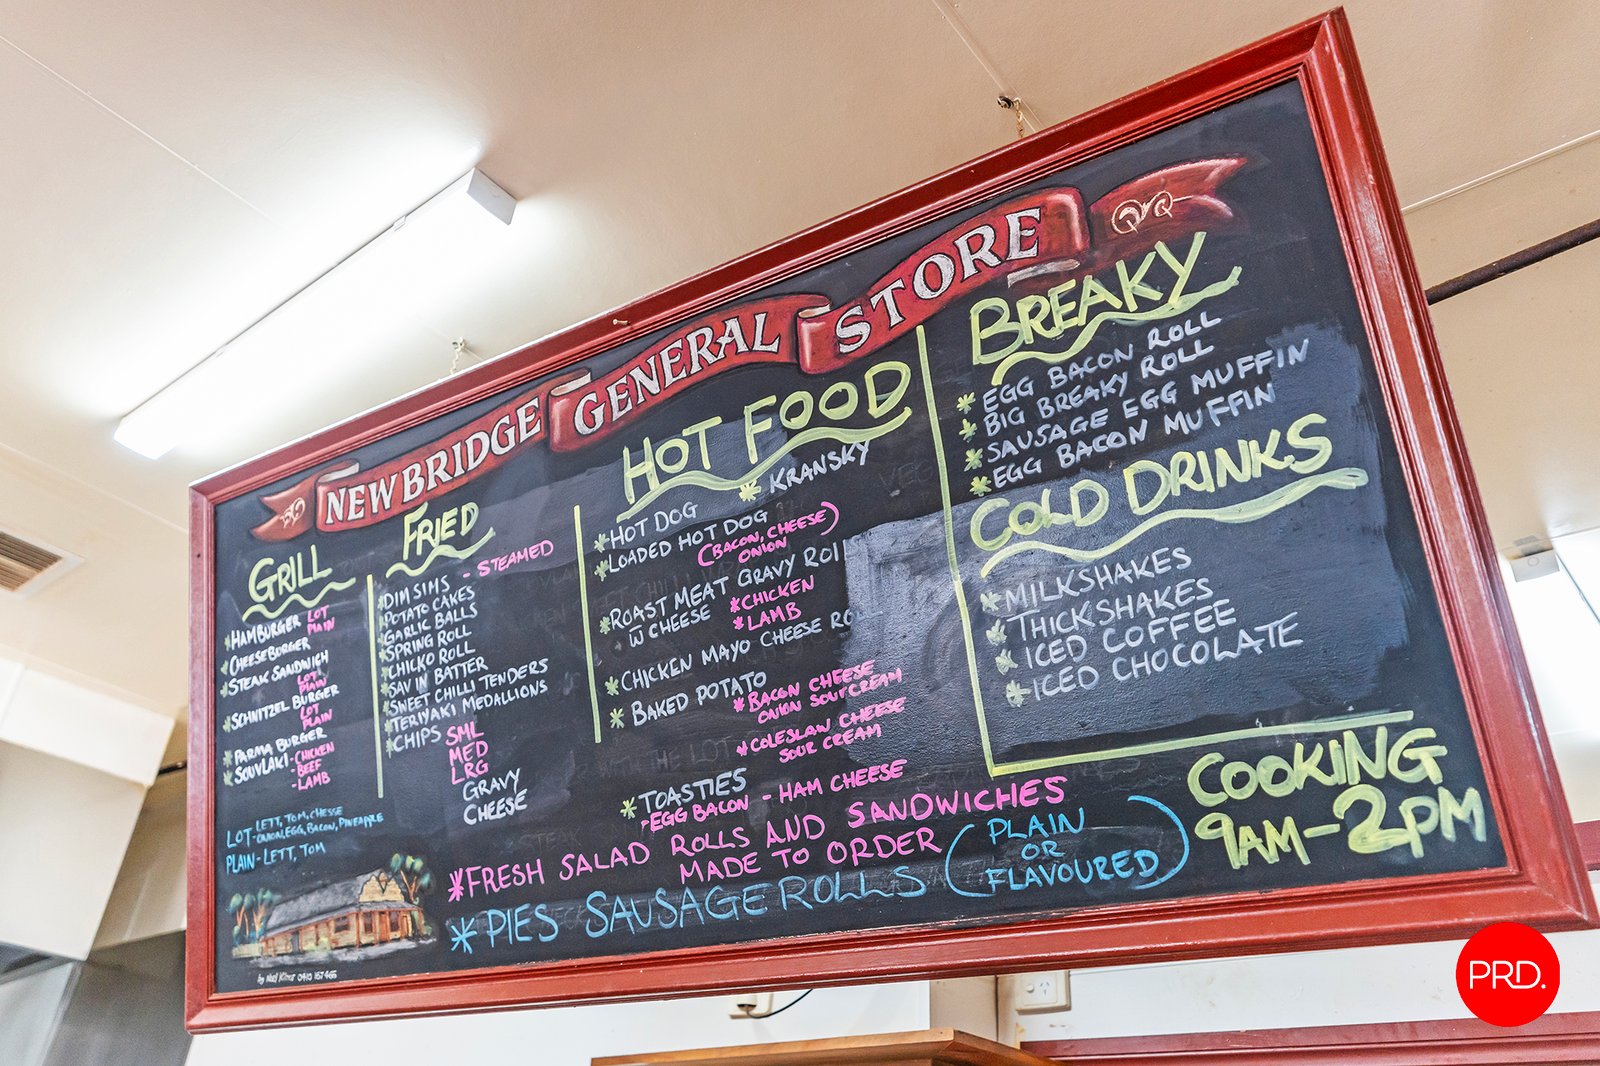 NEWBRIDGE GENERAL STORE
GRILL
*HAMBURGER LOT
PLAIN
*CHEESEBURGER
*STEAK SANDWICH
LOT
PLAIN
*SCHNITZEL BURGER
LOT
PLAIN
*PARMA BURGER
*SOUVLAKI -CHICKEN
-BEEF
-LAMB
LOT- LETT, TOM, CHEESE
ONION, EGG, BACON, PINEAPPLE
PLAIN- LETT, TOM
FRIED
*DIM SIMS - STEAMED
*POTATO CAKES
*GARLIC BALLS
*SPRING ROLL
*CHICKO ROLL
*SAV IN BATTER
*SWEET CHILLI TENDERS
*TERIYAKI MEDALLIONS
*CHIPS SML
MED
LRG
GRAVY
CHEESE
HOT FOOD
*KRANSKY
*HOT DOG
*LOADED HOT DOG
(BACON, CHEESE)
ONION
*ROAST MEAT GRAVY
W CHEESE *CHICKEN
*LAMB
*CHICKEN MAYO CHEESE
*BAKED POTATO
*BACON CHEESE
ONION SOUR CREAM
*COLESLAW CHEESE
SOUR CREAM
*TOASTIES
-EGG BACON - HAM CHEESE
BREAKY
*EGG BACON ROLL
*BIG BREAKY ROLL
*SAUSAGE EGG MUFFIN
*EGG BACON MUFFIN
COLD DRINKS
*MILKSHAKES
*THICKSHAKES
*ICED COFFEE
*ICED CHOCOLATE
COOKING
9AM-2PM
*FRESH SALAD ROLLS AND SANDWICHES
MADE TO ORDER
*PIES SAUSAGE ROLLS (PLAIN
OR
FLAVOURED)
by 0410 157 466
PRD.